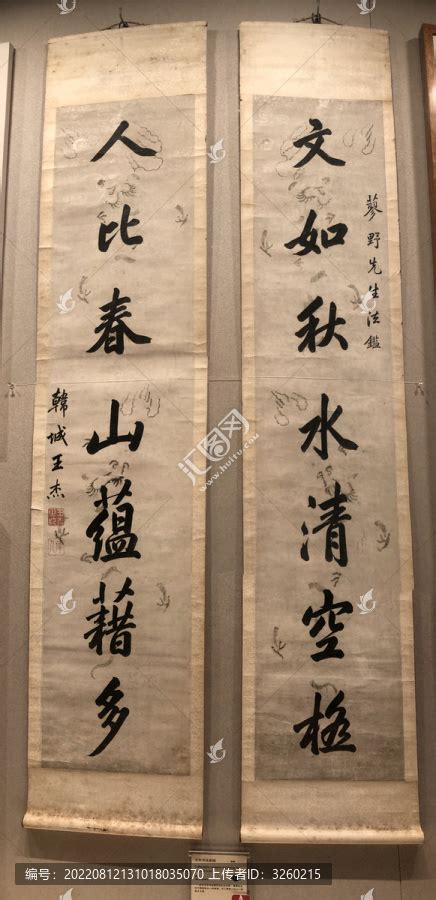 蓼野先生法鑑
文如秋水清空极
人比春山蕴藉多
韓城王杰
汇图网
www.huitu.com
编号：20220812131018035070 上传者ID：3260215